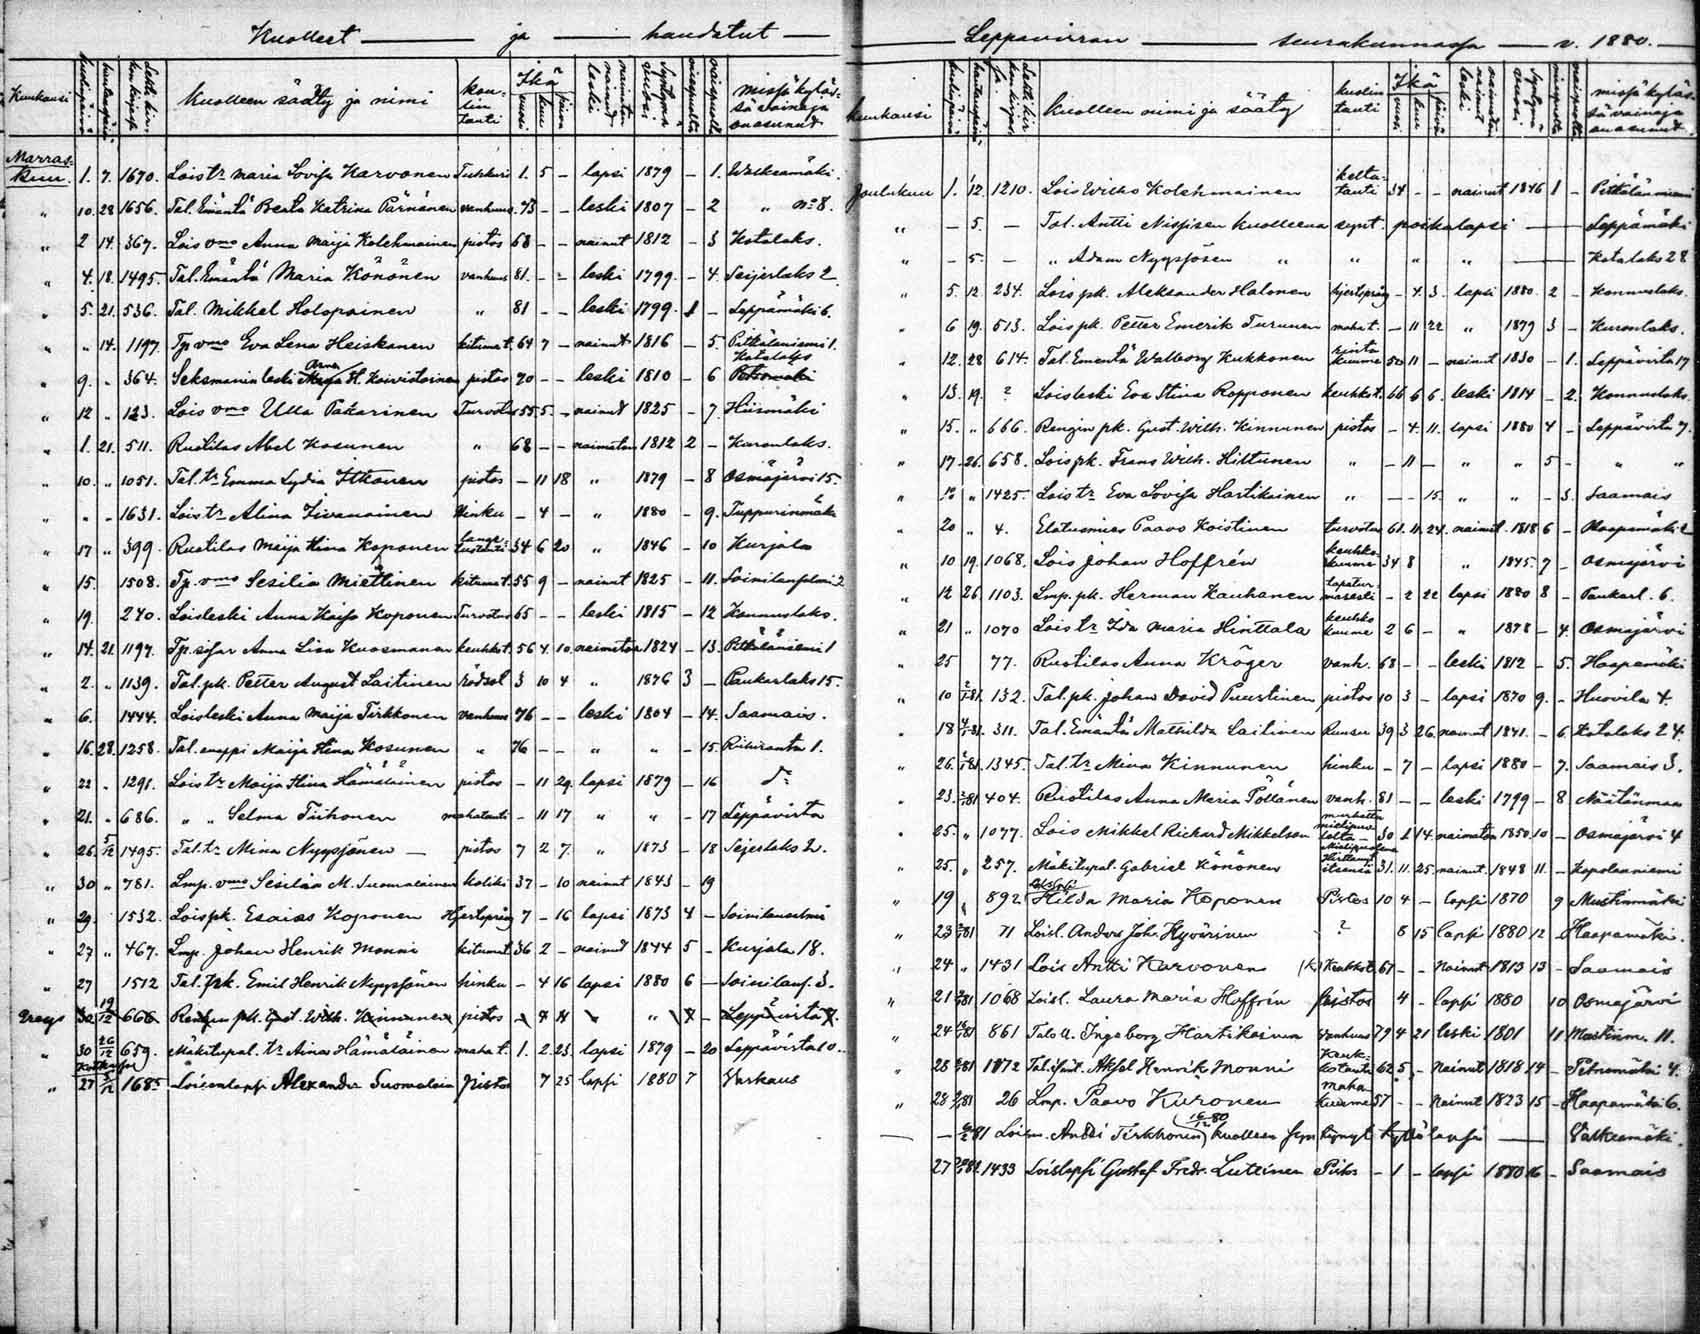 Kuolleet — ja — haudatut —
Kuukausi kuolinpäivä hautauspäivä Kuolleen sääty ja nimi kuolin tauti Ikä vuosi kuu päivä naimaton nainut leski Syntymä vuosi miespuolta vaispuolta missä kyläs-
sä vainaja
on asunut
Marras-
kuu. 1. 7. 1670. Lois tr Maria Lovisa Karvonen Tuhkuri 1. 5 – lapsi 1879 – 1. Valkeamäki.
„ 10. 28 1656. Tal. Emäntä Beata Katrina Pärnänen vanhuus. 73 – – leski 1807 – 2 „ No 8.
„ 2 14. 367. Lois vmo Anna Maija Kolehmainen pistos 68 – – nainut 1812 – 3 Kotalaks.
„ 4. 18. 1495. Tal. Emäntä Maria Könönen vanhuus 81. – – leski 1799. – 4. Seijerlaks 2
„ 5. 21. 536. Tal. Mikkel Holopainen „ 81 – – leski 1799. 1 – Leppämäki 6.
„ „ 14. 1197. Tp. vmo Eva Lena Heiskanen kitumat. 64 7 – nainut 1816 – 5. Pitkälänniemi 1.
„ 9. „ 364. Seksmanin leski Anna H. Koivistoinen pistos 70 – – leski 1810 – 6 Kotalaks
„ 12 „ 123. Lois vmo Ulla Pakarinen Turvotus 55 5. – nainut 1825 – 7. Hiismäki
„ 1. 21. 511. Ruotilas Abel Kosunen „ 68 – – naimaton 1812 2 – Kuronlaks.
„ 10. „ 1051. Tal. tr Emma Lydia Itkonen pistos – 11 18 „ 1879 – 8 Osmajärvi 15.
„ „ „ 1631. Lois tr Alina Iivanainen hinku – 4 – „ 1880 – 9. Tuppurinmäki
„ 17 „ 399. Ruotilas Maija Stina Koponen 34 6 20 „ 1846 – 10 Kurjala
„ 15. 1508. Tp. vmo Sesilia Miettinen kitumat. 55 9 – nainut 1825 – 11. Soinilansalmi 2
„ 19. 240. Loisleski Anna Kaisa Koponen Turvotus 65 – – leski 1815 – 12 Konnuslaks.
„ 14. 21. 1197. Tp. sisar Anna Lisa Kuosmanen keuhkot. 56 4. 10. naimaton 1824 – 13. Pitkälänniemi 1
„ 2. „ 1139. Tal. pk. Petter August Laitinen rödsol 3 10 4 „ 1876 3 – Paukarlaks 15.
„ 6. 1444. Loisleski Anna Maija Tirkkonen vanhuus 76 – – leski 1804 – 14. Saamais.
„ 16. 28. 1258. Tal. anoppi Maija Stina Kosunen „ 76 – – „ „ – 15. Riihiranta 1.
„ 22 „ 1291. Lois tr Maija Stina Hämäläinen pistos – 11 29. lapsi 1879 – 16 do
„ 21. „ 686. „ „ Selma Tiihonen mahatauti – 11 17 „ „ – 17 Leppävirta
„ 26. 5/12 1495. Tal. tr Mina Nyyssönen — pistos 7 2 7. „ 1873 – 18 Seijerlaks 2.
„ 30 „ 781. Lmp. vmo Sesilia M. Suomalainen koliki 37 – 10 nainut 1843 – 19
„ 29. 1532. Lois pk. Esaias Koponen Hjertspräng 7 – 16 lapsi 1873 4 – Soinilansalmi
„ 27 „ 467. Lmp. Johan Henrik Monni kitumat. 36 2 – nainut 1844 5 – Kurjala 18.
„ 27 1512 Tal. pk. Emil Henrik Nyyssönen hinku – 4 16 lapsi 1880 6 – Soinilans. 3.
30 19/12 666 Rengin pk. Gust. Wilh. Kinnunen pistos „ Leppävirta 7.
„ 30 26/12 659. Mäkitupal. tr Aina Hämäläinen maha t. 1. 2. 23. lapsi 1879 – 20 Leppävirta 10.
„ 27 5/12 1685 Loisenlapsi Alexander Suomalain Pistos 7 25 lapsi 1880 7 Varkaus
Leppävirran — seurakunnassa — v. 1880.
kuukausi kuolleen nimi ja sääty kuolin tauti Ikä vuosi kuu päivä missä kyläs-
sä vainaja
on asunut
Joulukuu 1. 12. 1210. Lois Wilho Kolehmainen kelta-
tauti 34 – – nainut 1846 1 – Pitkälänniemi
„ – 5. – Tal. Antti Nissisen kuolleena synt. poikalapsi — Leppämäki
„ – 5. – „ Adam Nyyssösen „ „ „ „ — Kotalaks 28
„ 5. 12. 234. Lois pk. Aleksander Halonen hjertspräng – 4. 3. lapsi 1880. 2 – Konnuslaks.
„ 6 19. 513. Lois pk. Petter Emerik Turunen mahat. – 11 22 „ 1879 3 – Kuronlaks.
„ 12. 28 614. Tal. Emäntä Walborg Kukkonen rinta
kuume 50 11 – nainut 1830 – 1. Leppävirta 17
„ 13. 19. ? Loisleski Eva Stina Ropponen keuhkot. 66 6 6. leski 1814 – 2. Konnuslaks.
„ 15. „ 666. Rengin pk. Gust. Wilh. Kinnunen pistos – 4. 11. lapsi 1880 4 – Leppävirta 7.
„ 17. 26. 658. Lois pk. Frans Wilh. Hiltunen „ – 11 – „ „ 5 – „ „
„ 12 „ 1425. Lois tr Eva Lovisa Hartikainen „ – – 15. „ „ – 3. Saamais
„ 20 „ 4. Elatusmies Paavo Koistinen turvotus 61. 11. 24. nainut. 1818 6 – Haapamäki 2
„ 10 19. 1068. Lois Johan Hoffrén keuhko-
kuume 34 8 „ 1845. 7 – Osmajärvi
„ 12 26. 1103. Lmp. pk. Herman Kauhanen tapatur-
masesti – 2 22 lapsi 1880 8 – Paukarl. 6.
„ 21 „ 1070 Lois tr Ida Maria Hinttala keuhko
kuume 2 6 – „ 1878 – 4. Osmajärvi
„ 25 77. Ruotilas Anna Kröger vanh. 68 – – leski 1812 – 5. Haapamäki
„ 10 132. Tal. pk. Johan David Puustinen pistos 10 3 – lapsi 1870 9. – Huovila 4.
„ 18 311. Tal. Emäntä Mathilda Laitinen 39 3 26. nainut 1841. – 6. Kotalaks 24.
„ 26. 1345. Tal. tr Mina Kinnunen hinku – 7 – lapsi 1880 – 7. Saamais 3.
„ 23. 404. Ruotilas Anna Maria Pöllänen vanh. 81 – – leski 1799 – 8
„ 25. „ 1077. Lois Mikkel Rickard Mikkelson 30 2 14. naimaton 1850. 10 – Osmajärvi 4
„ 25. „ 257. Mäkitupal. Gabriel Könönen Mielipuolena
Hirttänyt
itsensä 31. 11. 25. nainut. 1848 11. – Kopolanniemi
„ 19 „ 892 Hilda Maria Koponen Pistos 10 4 – lapsi 1870 9 Mustinmäki
„ 23 71 Loisl. Anders Joh. Hyvärinen ? 8 15 lapsi 1880 12 – Haapamäki.
„ 24 „ 1431 Lois Antti Karvonen Keuhkot. 67 – – Nainut 1813 13 – Saamais
„ 21 1068 Loisl. Laura Maria Hoffrén pistos 4 – lapsi 1880 10 Osmajärvi
„ 24 861 Talo u. Ingeborg Hartikainen Vanhuus 79 4 21 leski 1801 11 Mustinm. 11.
„ 28 1872 Tal. isänt. Aksel Henrik Monni Keuh-
kotauti 62 5 – Nainut 1818 14 – Petromäki 4.
„ 28 26 Lmp. Paavo Kuronen maha
kuume 57 – – Nainut 1823 15 – Haapamäki 6.
— – 81 Loism. Antti Tirkkonen 16/12 80 kuolleena syntynyt tyttölapsi — Valkeamäki.
27 1433 Loislapsi Gustaf Fredr. Luttinen Pistos – 1 – lapsi 1880 16 – Saamais